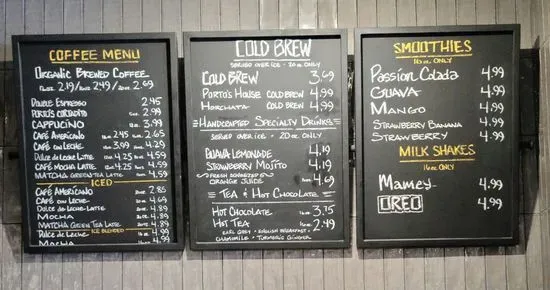 COFFEE MENU
ORGANIC BREWED COFFEE
12oz. 2.19/16oz. 2.49/20oz. 2.99
DOUBLE ESPRESSO 2.45
PORTO'S CORTADITO 2.95
CAPPUCCINO 3.99
CAFÉ AMERICANO 12oz 2.45 16oz 2.65
CAFÉ CON LECHE 12oz 3.99 16oz 4.29
DULCE DE LECHE LATTE 12oz 4.25 16oz 4.59
CAFÉ MOCHA LATTE 12oz 4.25 16oz 4.59
MATCHA GREEN TEA LATTE 4.59
ICED
CAFÉ AMERICANO 2.85
CAFÉ CON LECHE 4.59
DULCE DE LECHE LATTE 4.89
MOCHA 4.89
MATCHA GREEN TEA LATTE 4.89
DULCE DE LECHE ICE BLENDED 4.99
MOCHA 4.99
COLD BREW
SERVED OVER ICE - 20oz ONLY
COLD BREW 3.69
PORTO'S HOUSE COLD BREW 4.99
HORCHATA COLD BREW 4.99
HANDCRAFTED SPECIALTY DRINKS
SERVED OVER ICE • 20oz ONLY
GUAVA LEMONADE 4.19
STRAWBERRY MOJITO 4.19
FRESH SQUEEZED
ORANGE JUICE 4.69
TEA & HOT CHOCOLATE
HOT CHOCOLATE 3.75
HOT TEA 2.49
EARL GREY • ENGLISH BREAKFAST
CHAMOMILE • TURMERIC GINGER
SMOOTHIES
16oz ONLY
PASSION COLADA 4.99
GUAVA 4.99
MANGO 4.99
STRAWBERRY BANANA 4.99
STRAWBERRY 4.99
MILK SHAKES
16oz ONLY
MAMEY 4.99
OREO 4.99